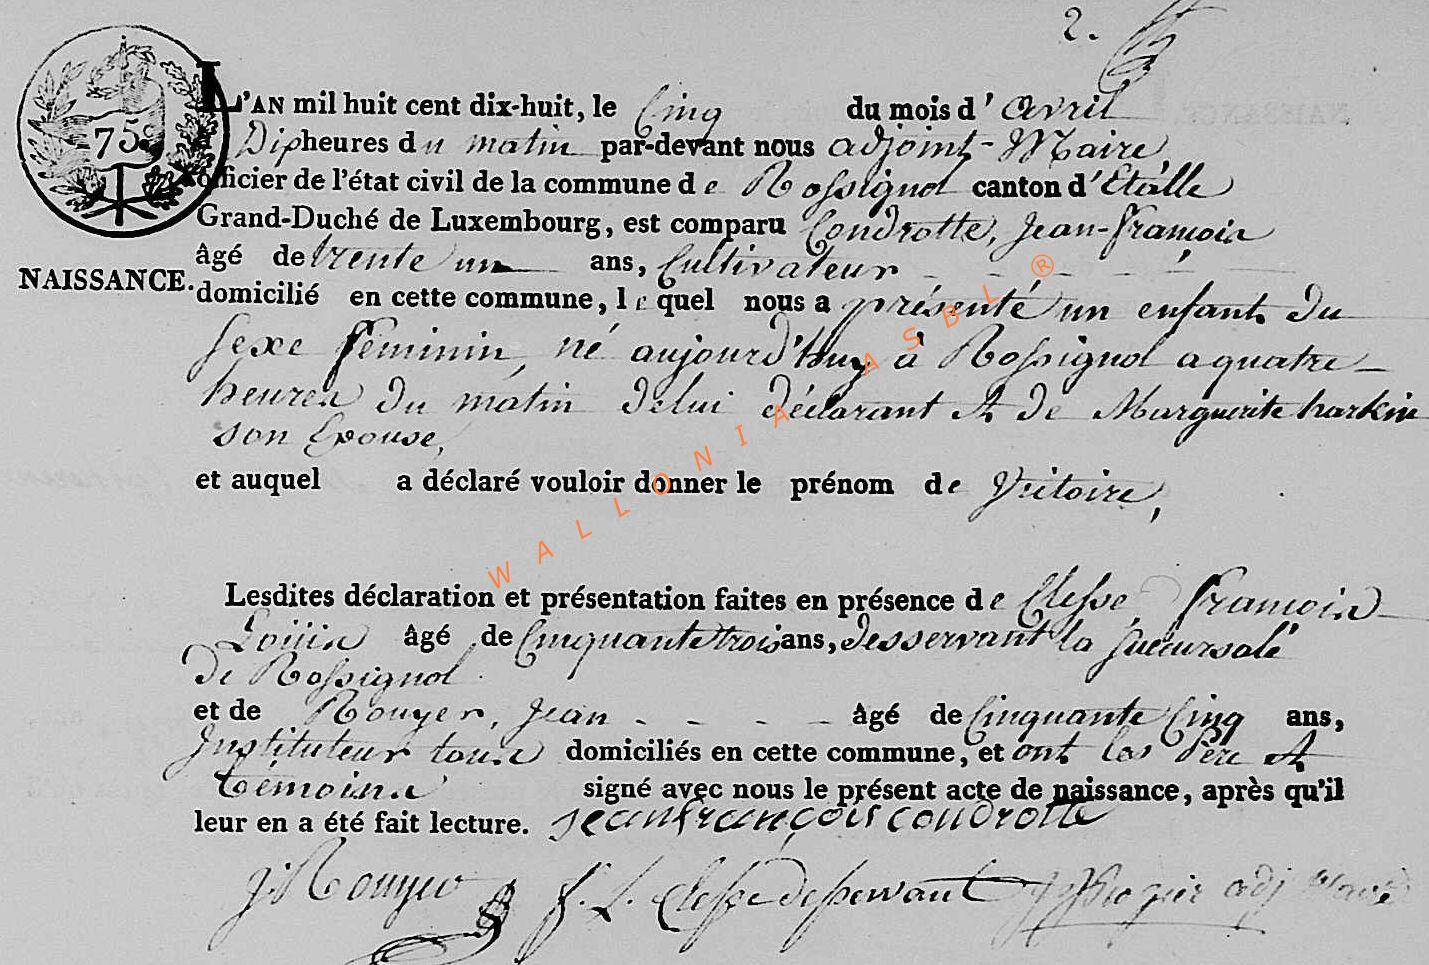 2.
75c
L'AN mil huit cent dix-huit, le Cinq du mois d'avril
a Dix heures du matin par-devant nous adjoint-Maire,
officier de l'état civil de la commune de Rossignol canton d'Etalle
Grand-Duché de Luxembourg, est comparu Condrotte, Jean-François
âgé de trente un ans, Cultivateur
NAISSANCE.
domicilié en cette commune, lequel nous a présenté un enfant du
sexe féminin, né aujourd'huy à Rossignol a quatre
heures du matin de lui déclarant et de Marguerite harkin
son Epouse,
et auquel a déclaré vouloir donner le prénom de Victoire,
Lesdites déclaration et présentation faites en présence de Clesse, François
Louis âgé de Cinquante trois ans, desservant la succursale
de Rossignol
et de Rouyer, Jean âgé de Cinquante Cinq ans,
Instituteur tous domiciliés en cette commune, et ont les Père et
témoins signé avec nous le présent acte de naissance, après qu'il
leur en a été fait lecture. Jean françois condrotte
J. Rouyer F. L. Clesse desservant adj maire
WALLONIA ASBL ®